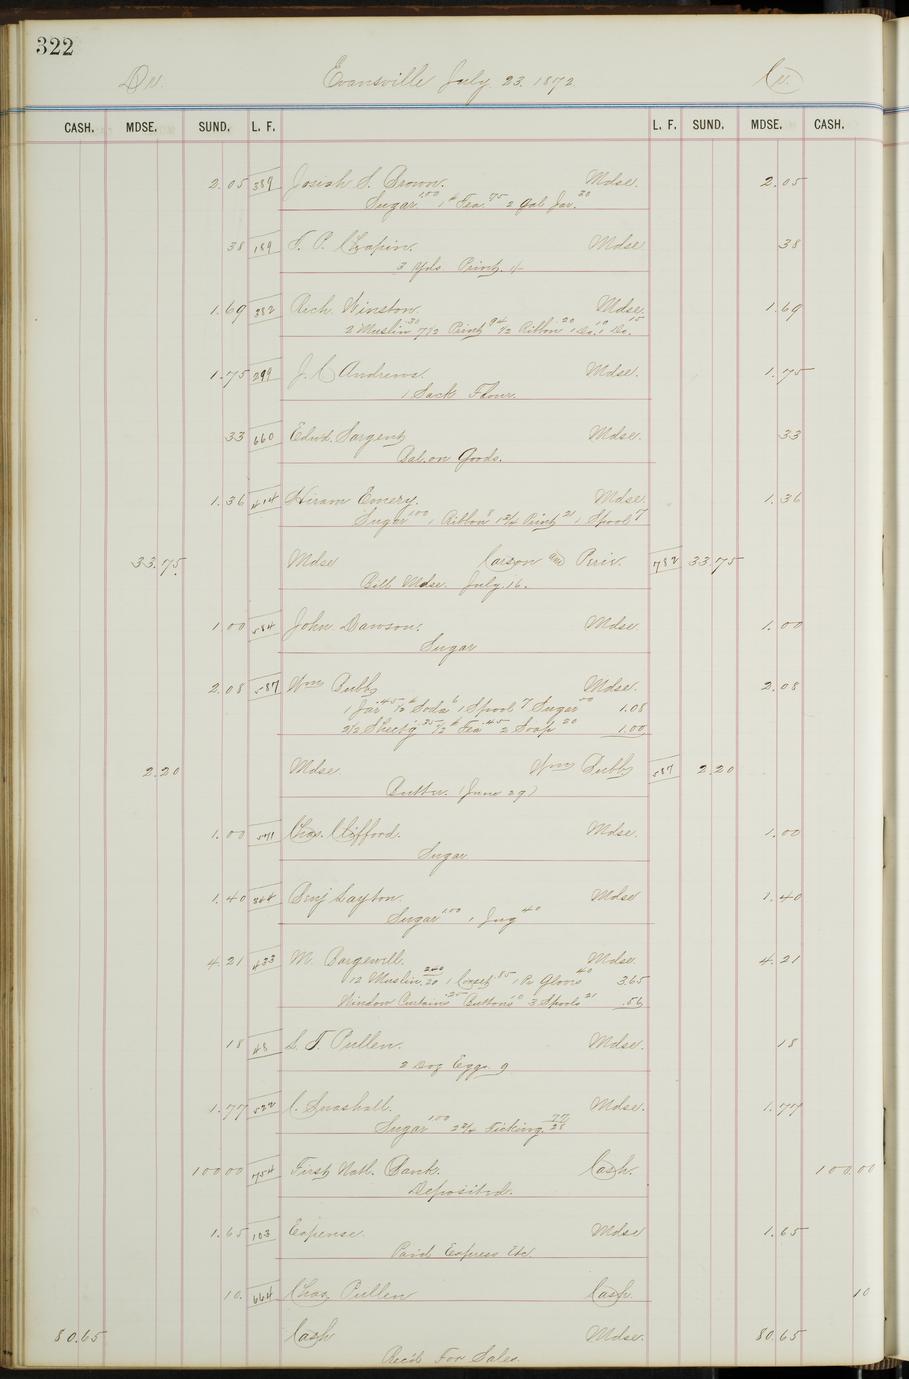 322
Dr. Evansville July 23. 1872. Cr.
CASH. MDSE. SUND. L. F. L. F. SUND. MDSE. CASH.
2.05 389 Josiah S. Brown. Mdse. 2.05
Sugar 1.00 1 # Tea. 75 2 Gal Jar. 20
38 189 T. P. Chapin. Mdse 38
3 Yds. Print. 1/-
1.69 382 Rich. Winston. Mdse. 1.69
2 Muslin 30 7 1/2 Print 94 1/2 Ribbon 20 1 Do. 10 1 Do. 15
1.75 299 J. C Andrews. Mdse. 1.75
1 Sack Flour.
33 660 Edwd. Sargent Mdse. 33
Bal. on Goods.
1.36 414 Hiram Emery. Mdse. 1.36
Sugar 1.00 1 Ribbon 8 1 3/4 Print 21 1 Spool 7
33.75 Mdse Carson and Pirie. 782 33.75
Bill Mdse. July 16.
1.00 584 John Dawson. Mdse. 1.00
Sugar
2.08 587 Wm Bubb Mdse. 2.08
1 Jar 45 1/2 # Soda 6 1 Spool 7 Sugar 50 1.08
2 1/2 Sheet'g 35 1/2 # Tea 45 2 Soap 20 1.00
2.20 Mdse. Wm Bubb 587 2.20
Butter. (June 29)
1.00 Chas. Clifford. Mdse. 1.00
Sugar
1.40 Benj Layton. Mdse 1.40
Sugar 1.00 1 Jug 40
4.21 433 M. Bargewell. Mdse. 4.21
12 Muslin 20 2.40 1 Corset 85 1 Pr Gloves 40 3.65
Window Curtains 25 Buttons 10 3 Spools 21 .56
18 48 L. T. Pullen. Mdse. 18
2 Doz Eggs. 9
1.77 522 C. Snashall. Mdse. 1.77
Sugar 1.00 2 3/4 Ticking. 77 28
100 00 754 First Natl. Bank. Cash. 100.00
Deposited.
1.65 103 Expense. Mdse 1.65
Paid Express Etc
10. 664 Chas Pullen Cash. 10
80.65 Cash Mdse. 80.65
Rec'd For Sales.